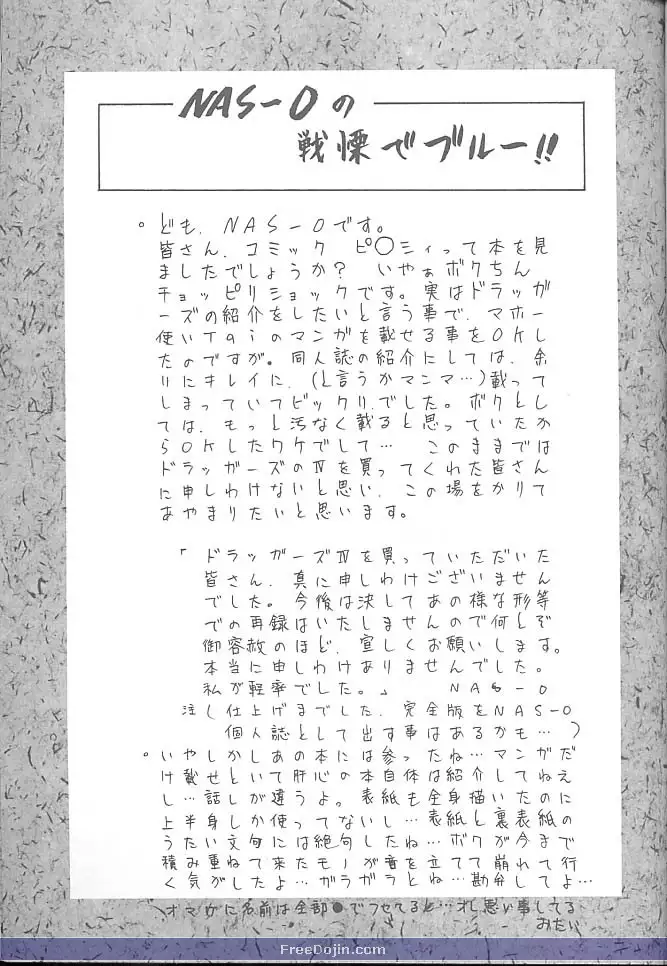 NAS-Oの
戦慄でブルー!!
。ども、NAS-Oです。
皆さん、コミック ピ〇シィって本を見
ましたでしょうか? いやぁボクちん
チョッピリショックです。実はドラッガ
ーズの紹介をしたいと言う事で、マホー
使いTaiのマンガを載せる事をOKし
たのですが。同人誌の紹介にしては、余
りにキレイに、(と言うかマンマ…)載って
しまっていてビックリ、でした。ボクとし
ては、もっと汚なく載ると思っていたか
らOKしたワケでして… このままでは
ドラッガーズのⅣを買ってくれた皆さん
に申しわけないと思い、この場をかりて
あやまりたいと思います。
「ドラッガーズⅣを買っていただいた
皆さん、真に申しわけございません
でした。今後は決してあの様な形等
での再録はいたしませんので何とぞ
御容赦のほど、宜しくお願いします。
本当に申しわけありませんでした。
私が軽率でした。」 NAS-O
注(仕上げまでした、完全版をNAS-O
個人誌として出す事はあるかも…)
。いやしかしあの本には参ったね…マンガだ
け載せといて肝心の本自体は紹介してねえ
し…話しが違うよ。表紙も全身描いたのに
上半身しか使ってないし…表紙と裏表紙の
うたい文句には絶句したね…ボクが今まで
積み重ねて来たモノが音を立てて崩れて行
く気がしたよ…ガラガラとね…勘弁してよ…
オマケに名前は全部●でフセてると…オレ悪い事してる
みたい
FreeDojin.com